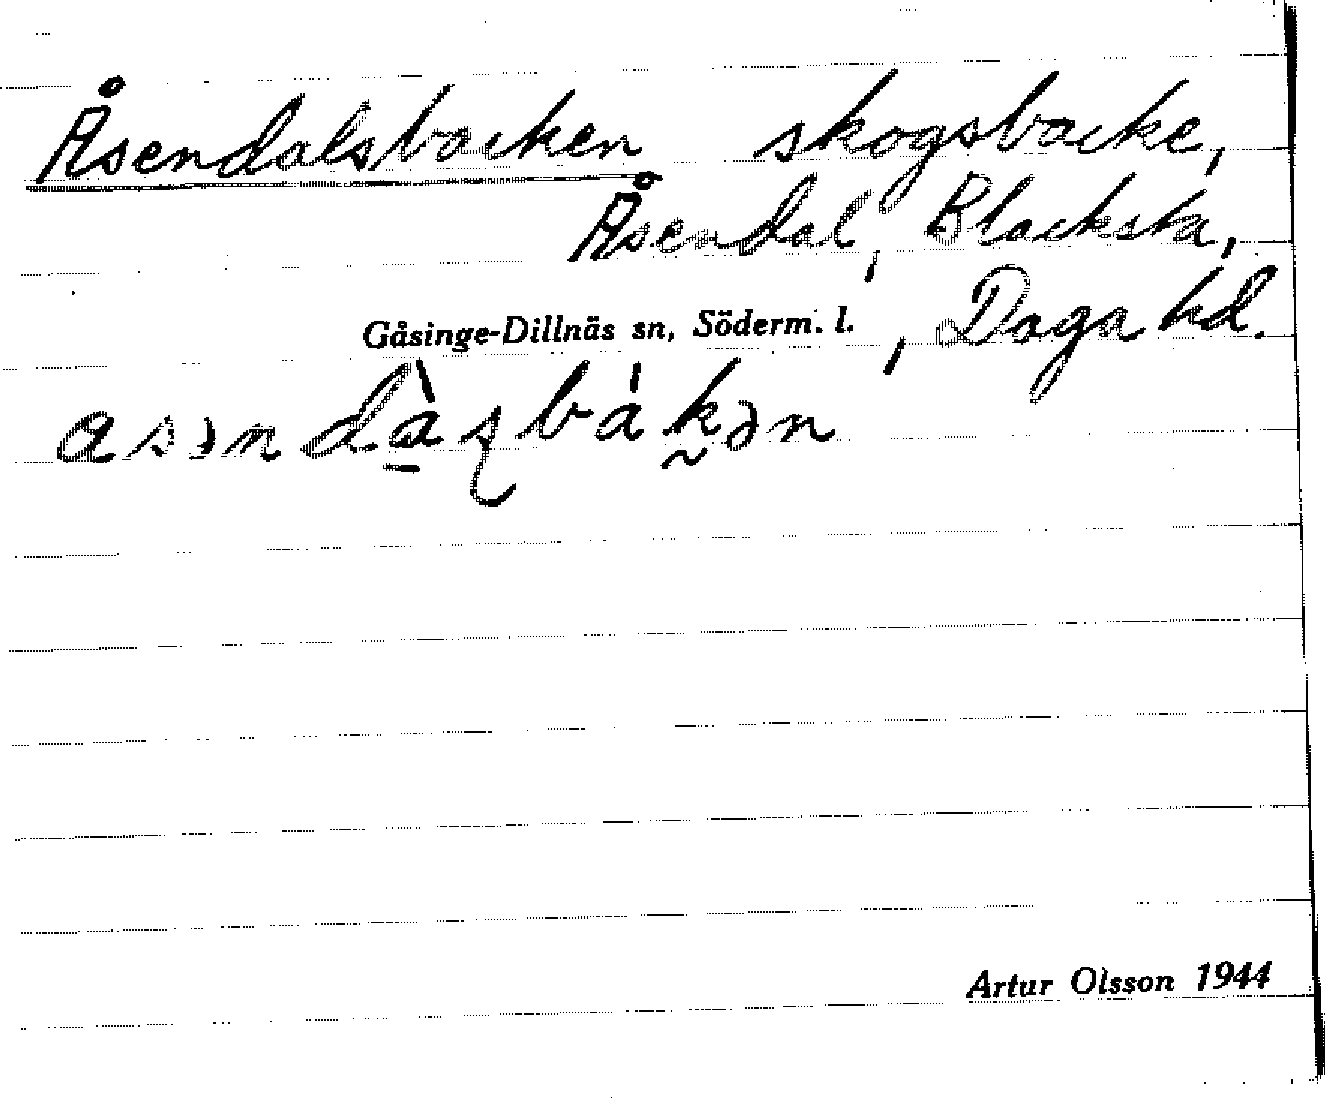 Åsendalsbacken skogsbacke,
Åsendal, Blacksta,
Gåsinge-Dillnäs sn, Söderm. l., Daga hd.
asəndàʂbákən
Artur Olsson 1944